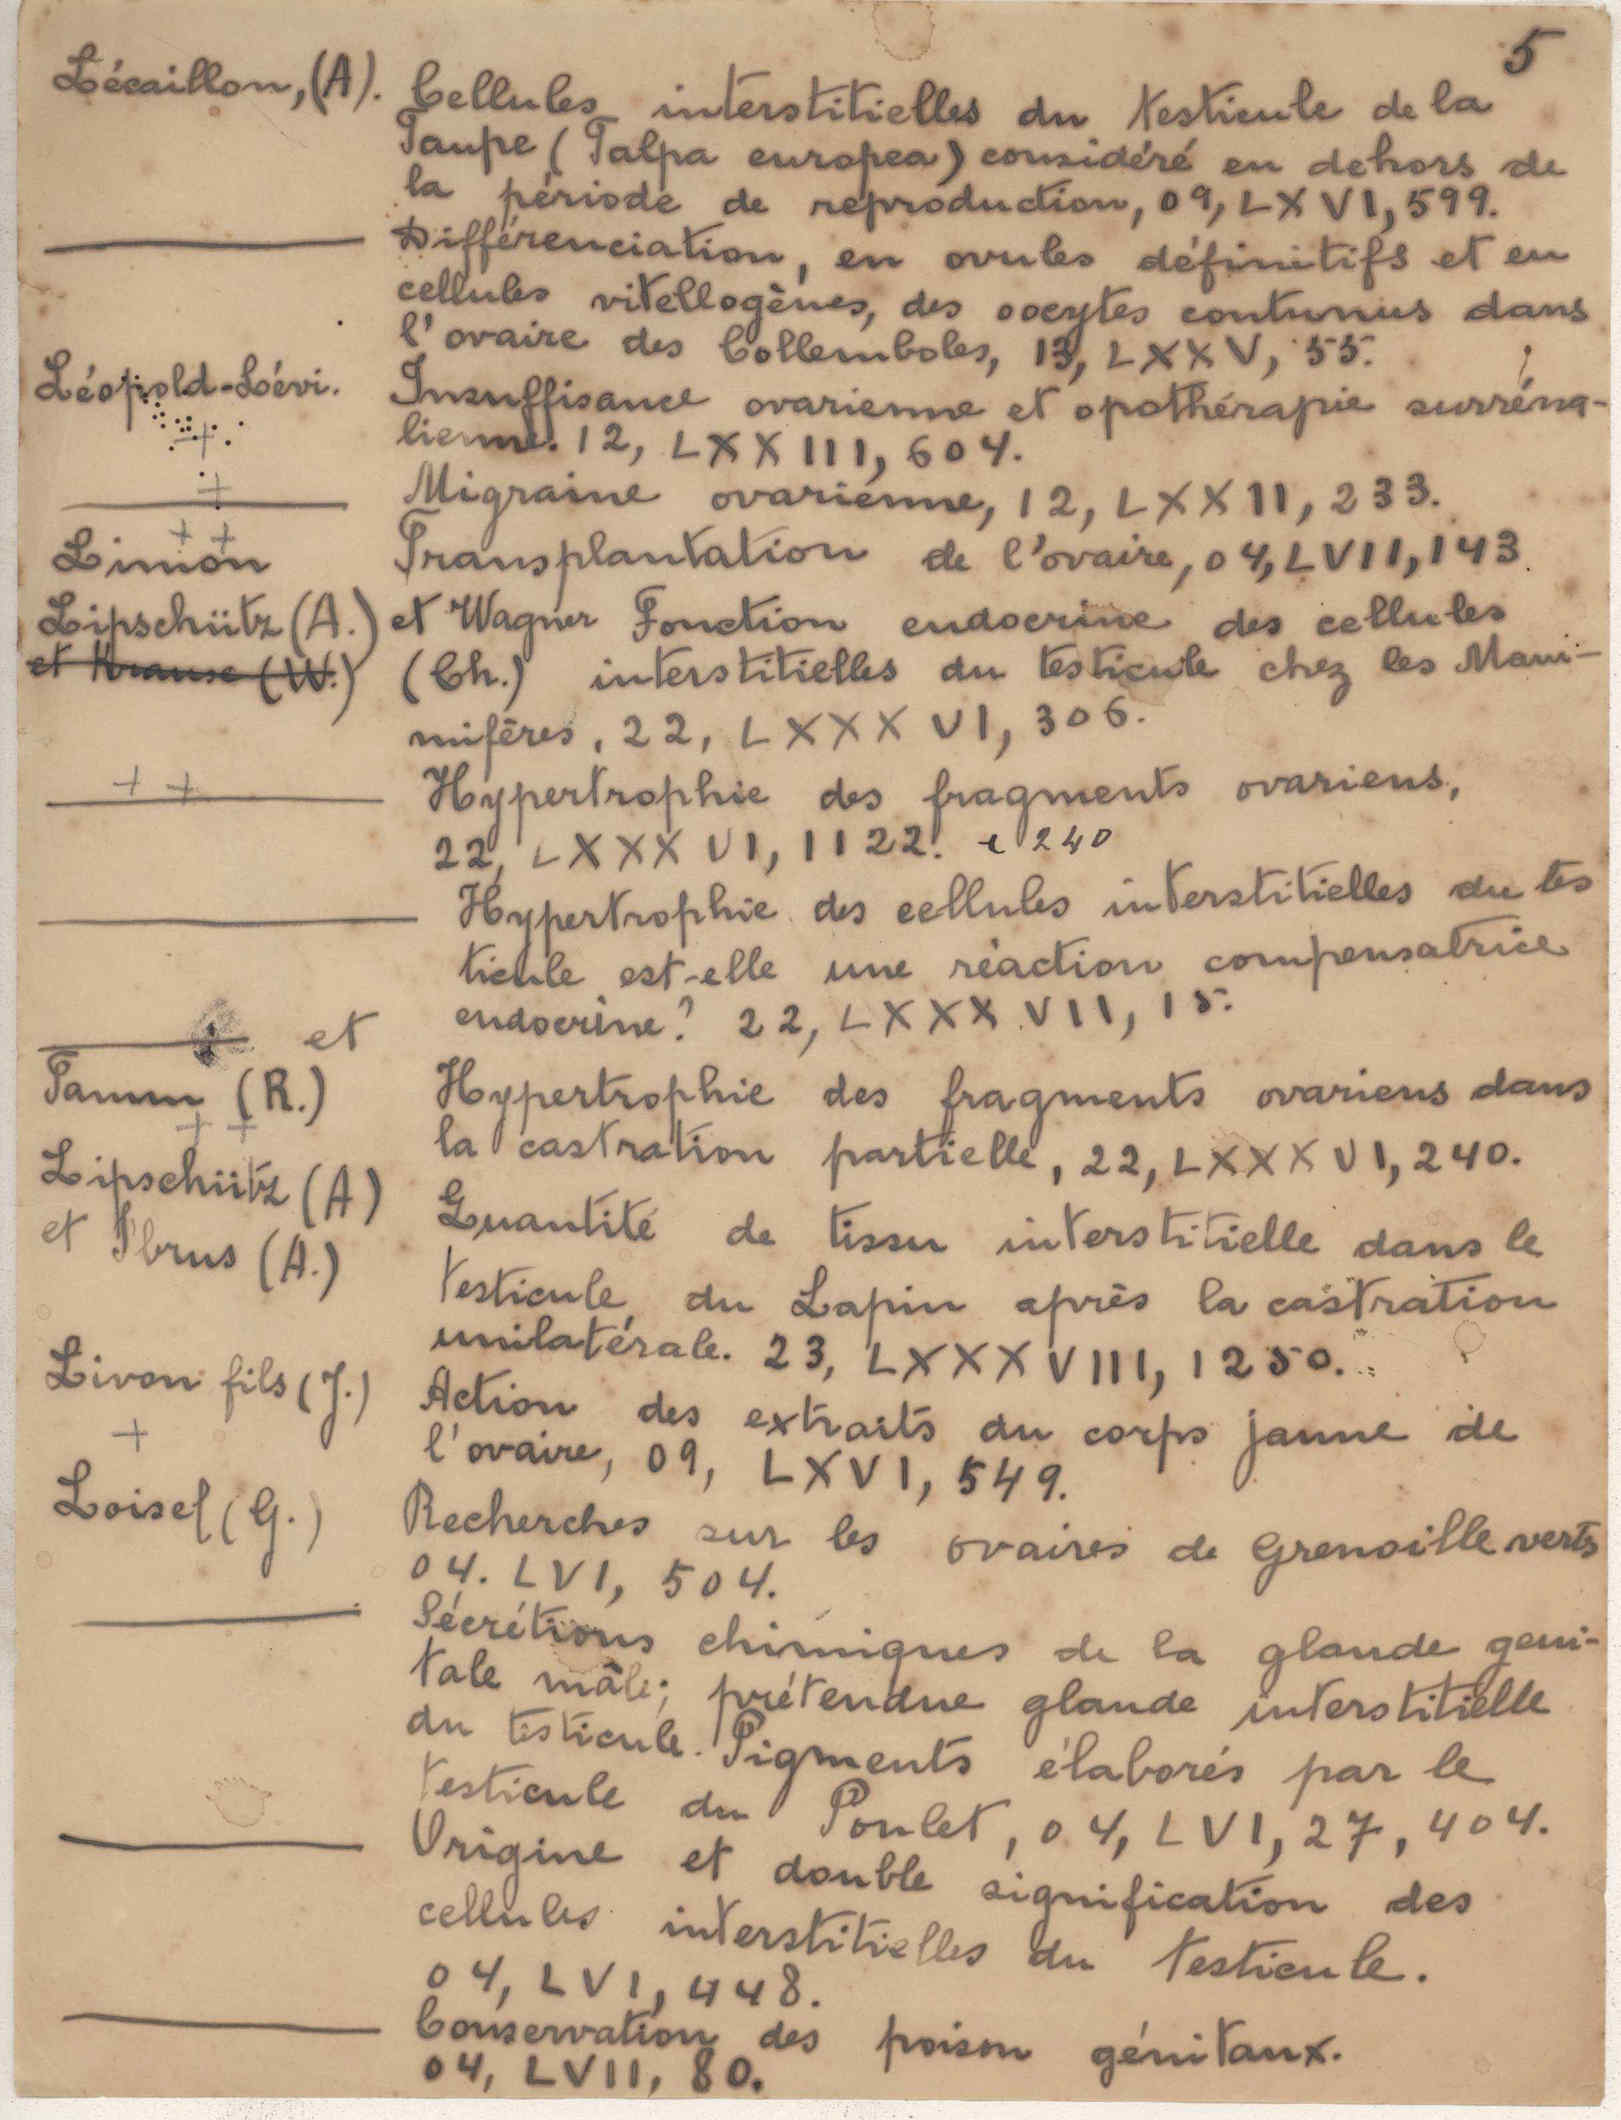 5
Lécaillon, (A). Cellules interstitielles du testicule de la
Taupe (Talpa europea) considéré en dehors de
la période de reproduction, 09, LXVI, 599.
Différenciation, en ovules définitifs et en
cellules vitellogènes, des oocytes contunus dans
l'ovaire des Collemboles, 13, LXXV, 55.
Léopold-Lévi. Insuffisance ovarienne et opothérapie surréna-
lienne. 12, LXXIII, 604.
Migraine ovarienne, 12, LXXII, 233.
Limon Transplantation de l'ovaire, 04, LVII, 143
Lipschütz (A.) et Wagner Fonction endocrine des cellules
et Krause (W.) (Ch.) interstitielles du testicule chez les Mam-
mifères, 22, LXXXVI, 306.
Hypertrophie des fragments ovariens,
22, LXXXVI, 1122. e 240
Hypertrophie des cellules interstitielles du tes
ticule est-elle une réaction compensatrice
endocrine? 22, LXXXVII, 15.
et
Tamm (R.) Hypertrophie des fragments ovariens dans
la castration partielle, 22, LXXXVI, 240.
Lipschütz (A) Quantité de tissu interstitielle dans le
et Ibrus (A.) testicule du Lapin après la castration
unilatérale. 23, LXXXVIII, 1250.
Livon fils (J.) Action des extraits du corps jaune de
l'ovaire, 09, LXVI, 549.
Loisel (G.) Recherches sur les ovaires de Grenouille verts
04. LVI, 504.
Sécrétions chimiques de la glande geni-
tale mâle; prétendue glande interstitielle
du testicule. Pigments élaborés par le
testicule du Poulet, 04, LVI, 27, 404.
Origine et double signification des
cellules interstitielles du testicule.
04, LVI, 448.
Conservation des poison génitaux.
04, LVII, 80.